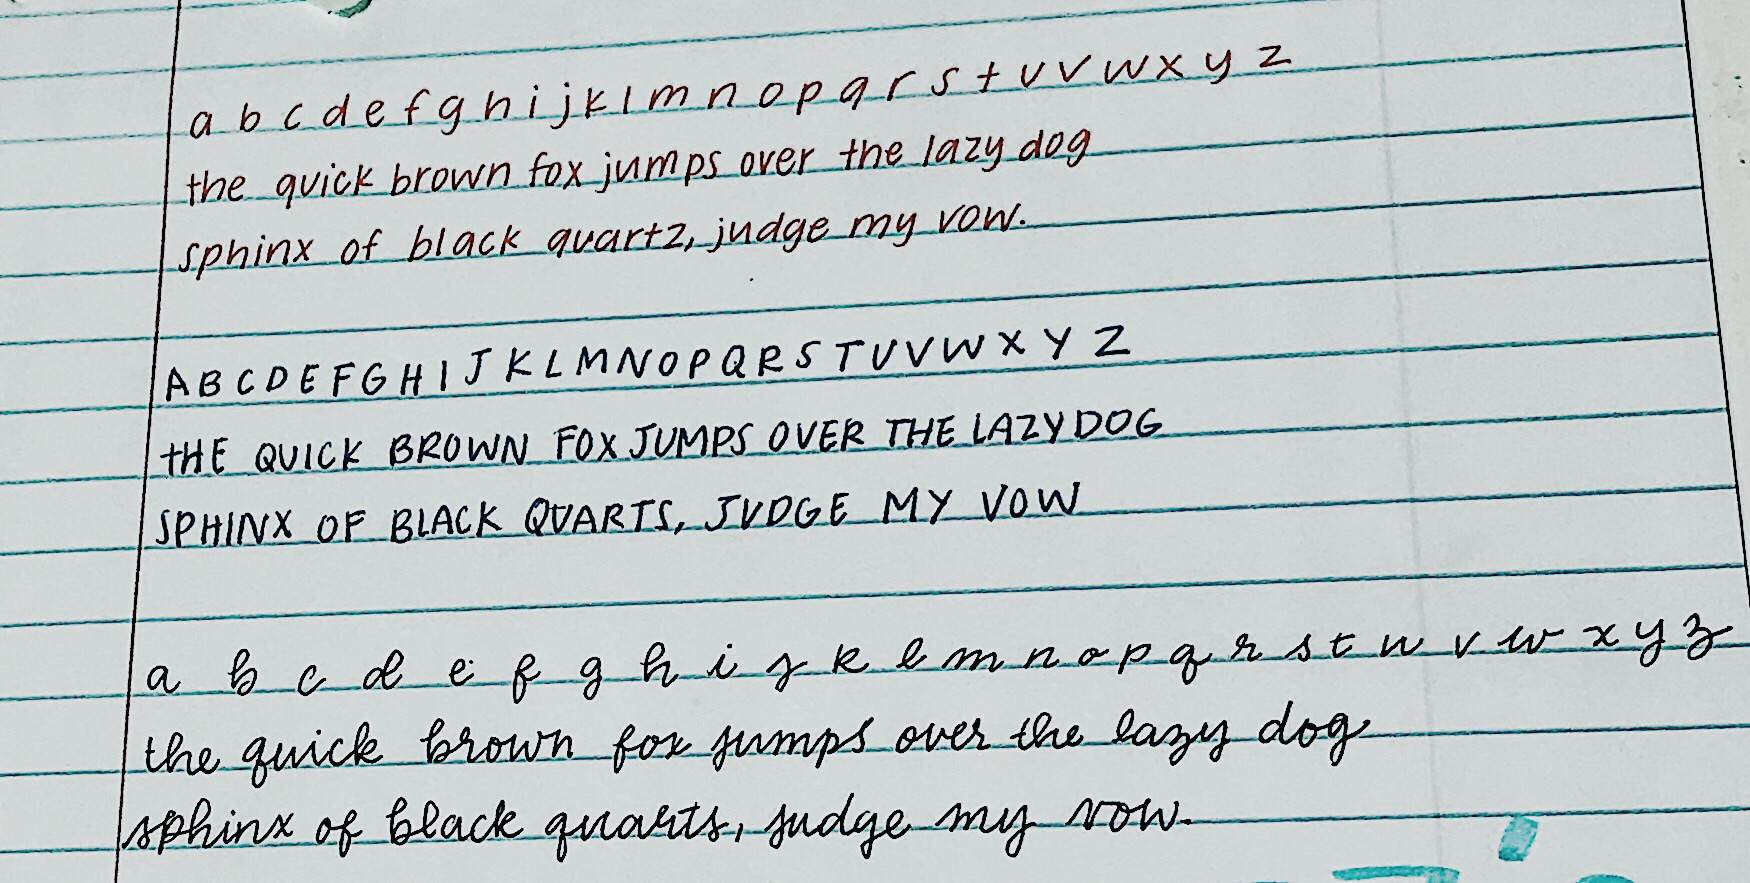 a b c d e f g h i j k l m n o p q r s t u v w x y z
the quick brown fox jumps over the lazy dog
sphinx of black quartz, judge my vow.
A B C D E F G H I J K L M N O P Q R S T U V W X Y Z
tHE QUICK BROWN FOX JUMPS OVER THE LAZY DOG
SPHINX OF BLACK QUARTS, JUDGE MY VOW
a b c d e f g h i j k l m n o p q r s t u v w x y z
the quick brown fox jumps over the lazy dog
sphinx of black quarts, judge my vow.